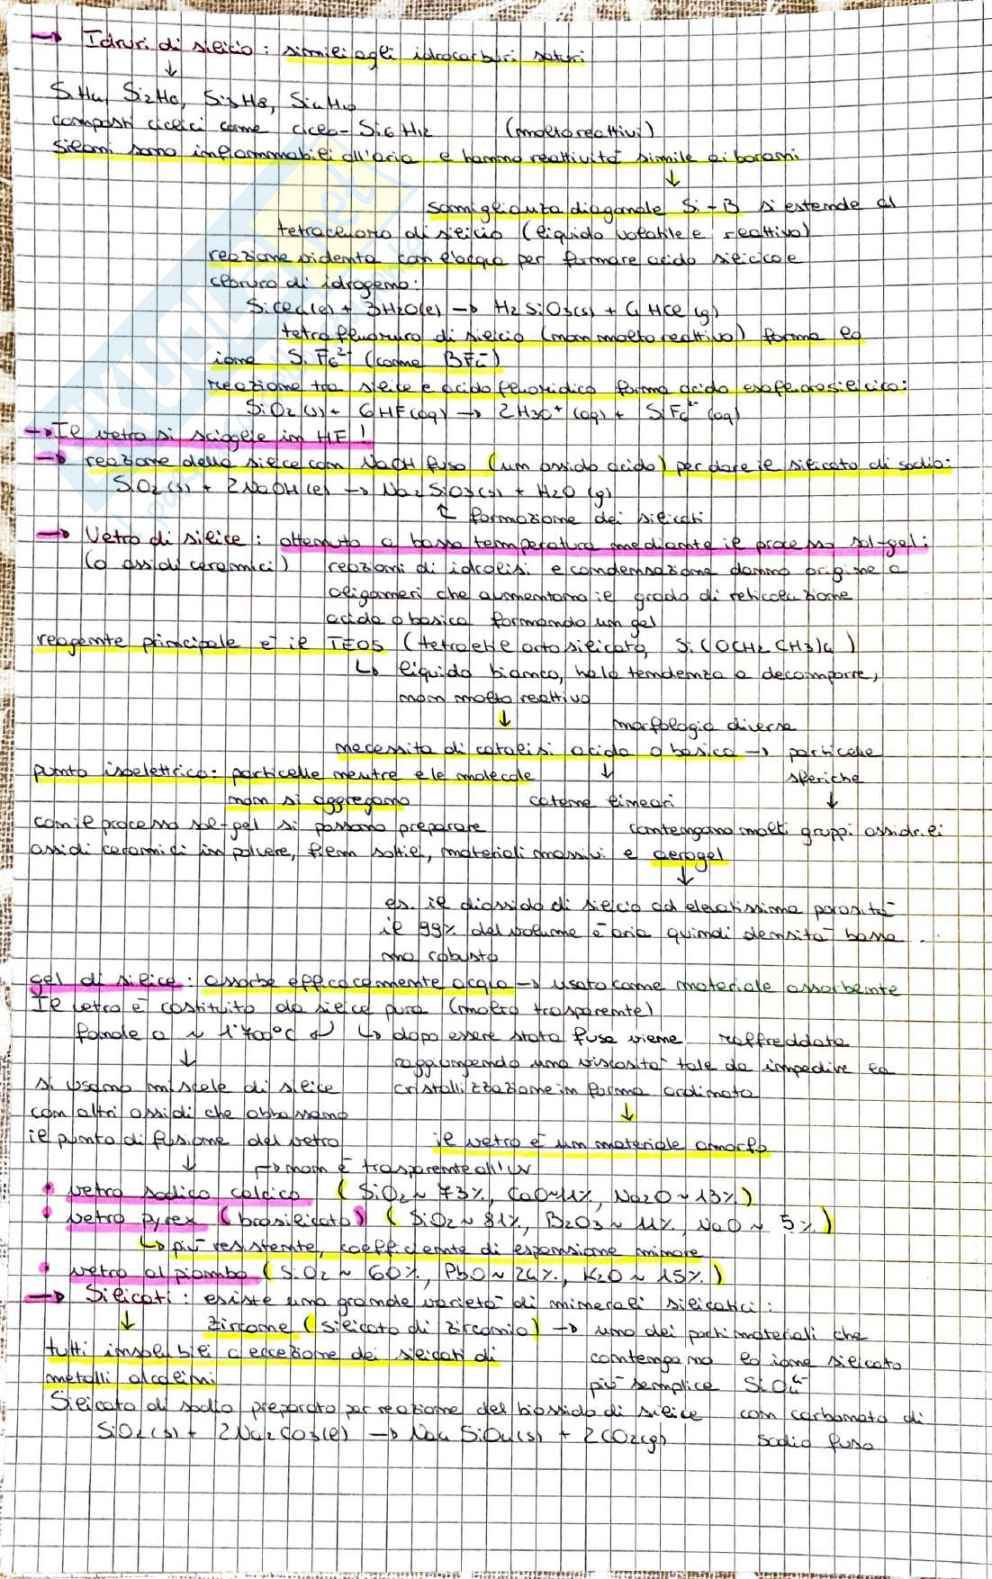 → Idruri di silicio: simili agli idrocarburi saturi
↓
SiH4, Si2H6, Si3H8, Si4H10
composti ciclici come ciclo-Si6H12 (molto reattivi)
Silani sono infiammabili all'aria e hanno reattività simile ai borani
↓
somiglianza diagonale Si-B si estende al
tetracloruro di silicio (liquido volatile e reattivo)
reazione violenta con l'acqua per formare acido silicico e
cloruro di idrogeno:
SiCl4(l) + 3H2O(l) → H2SiO3(s) + 4HCl(g)
tetrafluoruro di silicio (non molto reattivo) forma lo
ione SiF6²⁻ (come BF4⁻)
reazione tra silice e acido fluoridico forma acido esafluorosilicico:
SiO2(s) + 6HF(aq) → 2H3O⁺(aq) + SiF6²⁻(aq)
→ Il vetro si scioglie in HF!
→ reazione della silice con NaOH fuso (un ossido acido) per dare il silicato di sodio:
SiO2(s) + 2NaOH(l) → Na2SiO3(s) + H2O(g)
formazione dei silicati
→ Vetro di silice: ottenuto a bassa temperatura mediante il processo sol-gel:
(o ossidi ceramici) reazioni di idrolisi e condensazione danno origine a
oligomeri che aumentano il grado di reticolazione
acida o basica formando un gel
reagente principale è il TEOS (tetraetil ortosilicato, Si(OCH2CH3)4)
↳ liquido bianco, ha la tendenza a decomporre,
non molto reattivo
↓ morfologia diversa
necessita di catalisi acida o basica → particelle
punto isoelettrico: particelle neutre e le molecole ↓ sferiche
non si aggregano catene lineari ↓
con il processo sol-gel si possono preparare contengono molti gruppi ossidrili
ossidi ceramici in polvere, film sottili, materiali massivi e aerogel
↓
es. il diossido di silicio ad elevatissima porosità
il 99% del volume è aria quindi densità bassa
ma robusto
gel di silice: assorbe efficacemente acqua → usato come materiale assorbente
Il vetro è costituito da silice pura (molto trasparente)
fonde a ~ 1'700°C ↳ dopo essere stata fusa viene raffreddata
↓ raggiungendo una viscosità tale da impedire la
si usano miscele di silice cristallizzazione in forma ordinata
con altri ossidi che abbassano ↓
il punto di fusione del vetro il vetro è un materiale amorfo
↓ → non è trasparente all'UV
• vetro sodico calcico (SiO2 ~ 73%, CaO ~ 11%, Na2O ~ 13%)
• vetro pyrex (borosilicato) (SiO2 ~ 81%, B2O3 ~ 11%, NaO ~ 5%)
↳ più resistente, coefficiente di espansione minore
• vetro al piombo (SiO2 ~ 60%, PbO ~ 24%, K2O ~ 15%)
→ Silicati: esiste una grande varietà di minerali silicatici:
↓ zircone (silicato di zirconio) → uno dei pochi materiali che
tutti insolubili a eccezione dei silicati di contengono lo ione silicato
metalli alcalini più semplice SiO4⁴⁻
Silicato di sodio preparato per reazione del biossido di silice con carbonato di
SiO2(s) + 2Na2CO3(l) → Na4SiO4(s) + 2CO2(g) sodio fuso